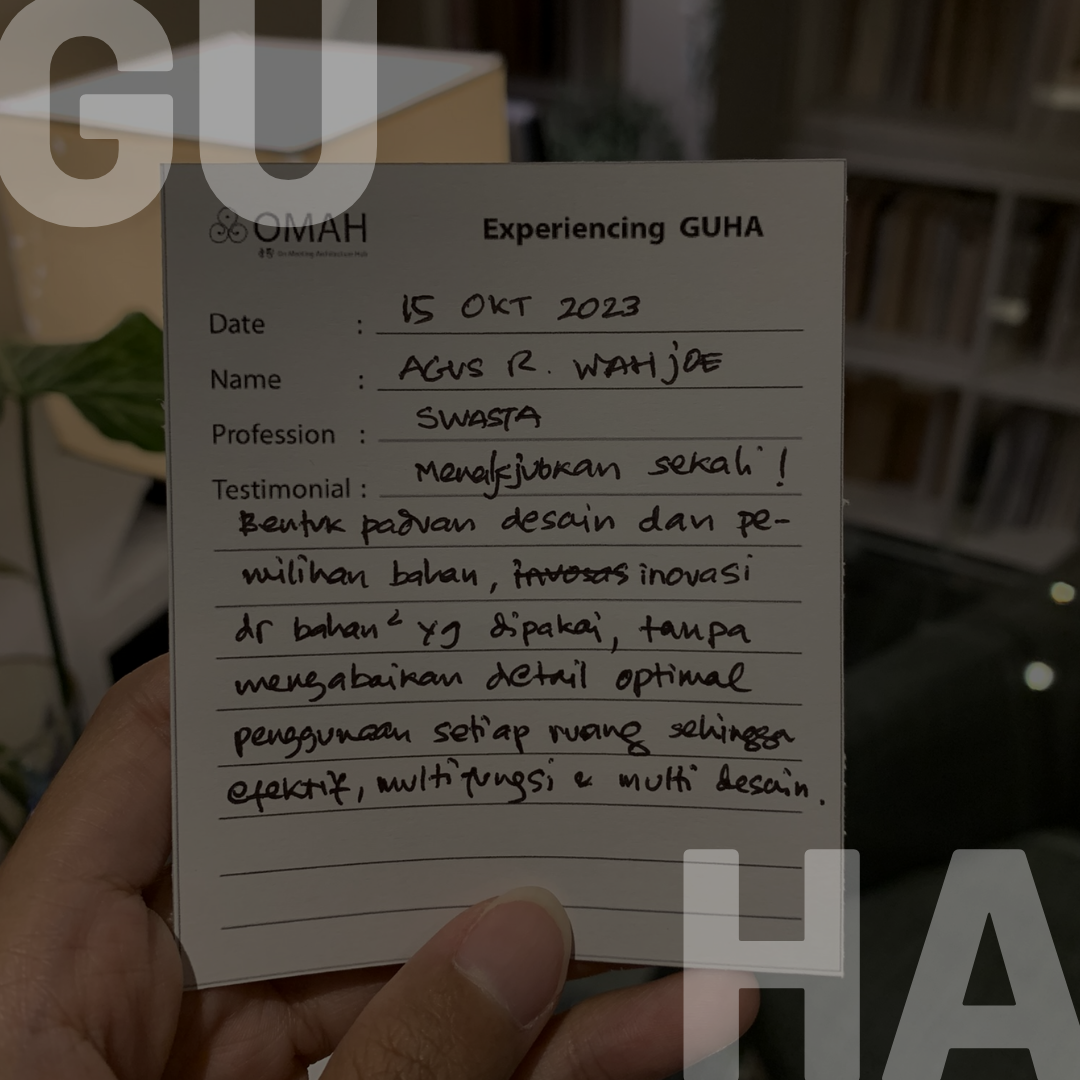 GU
OMAH
Experiencing GUHA
On Marking Architecture Hub
Date : 15 OKT 2023
Name : AGUS R. WAHjOE
Profession : SWASTA
Testimonial : Menakjubkan sekali !
Bentuk paduan desain dan pe-
milihan bahan, invosas inovasi
dr bahan² yg dipakai, tanpa
mengabaikan detail optimal
penggunaan setiap ruang sehingga
efektif, multifungsi & multi desain.
HA